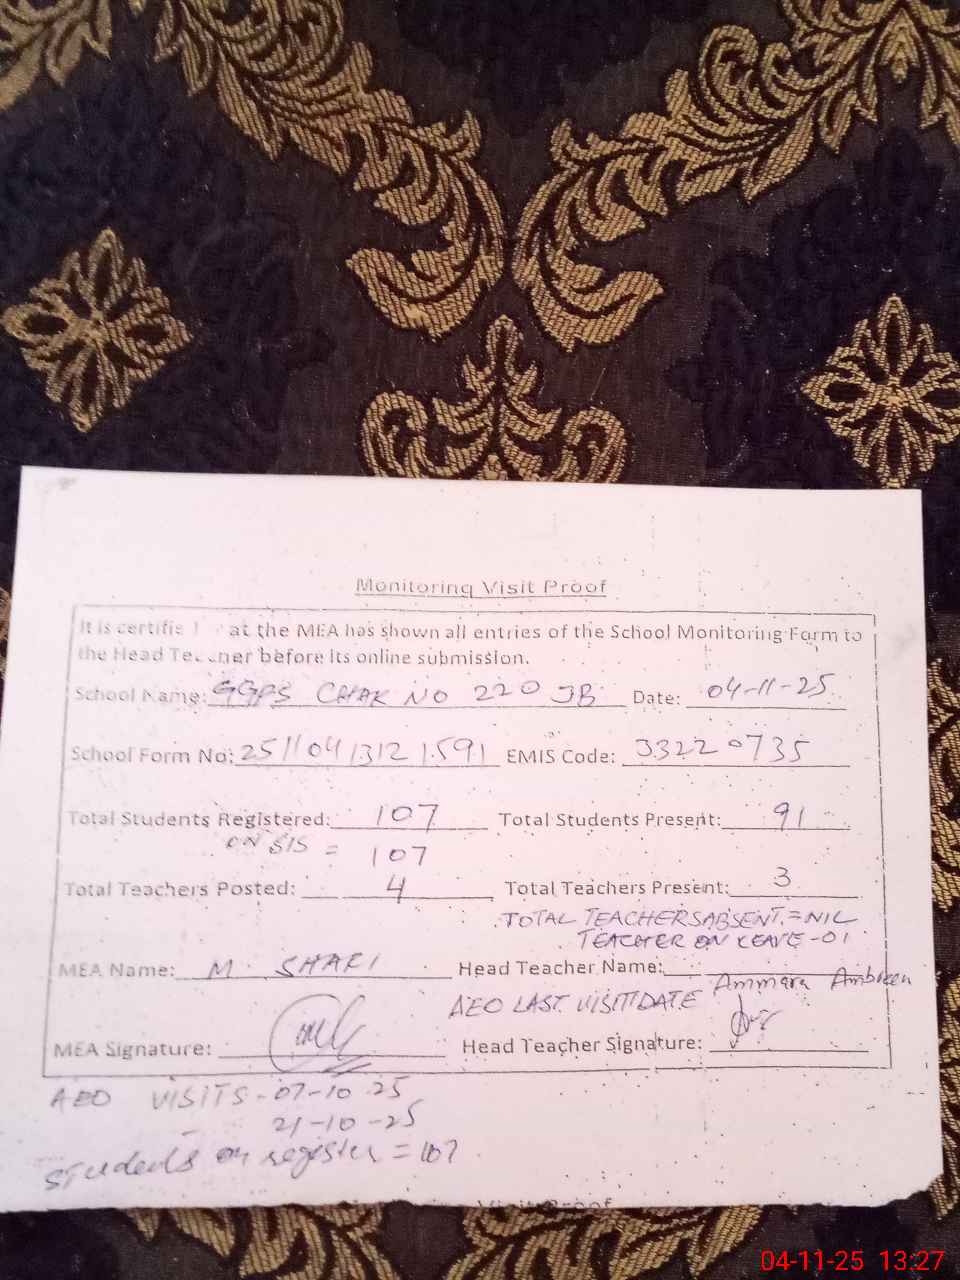 Monitoring Visit Proof
It is certifie at the MEA has shown all entries of the School Monitoring Form to
the Head Te cher before its online submission.
School Name: GGPS CHAK NO 220 JB Date: 04-11-25
School Form No: 25110413121591 EMIS Code: 33220735
Total Students Registered: 107 Total Students Present: 91
ON SIS = 107
Total Teachers Posted: 4 Total Teachers Present: 3
TOTAL TEACHERS ABSENT = NIL
TEACHER ON LEAVE - 01
MEA Name: M. SHAFI Head Teacher Name:
Ammara Ambreen
AEO LAST VISIT DATE
MEA Signature: Head Teacher Signature:
AEO VISITS - 07-10-25
21-10-25
Students on register = 107
Visit Proof
04-11-25 13:27